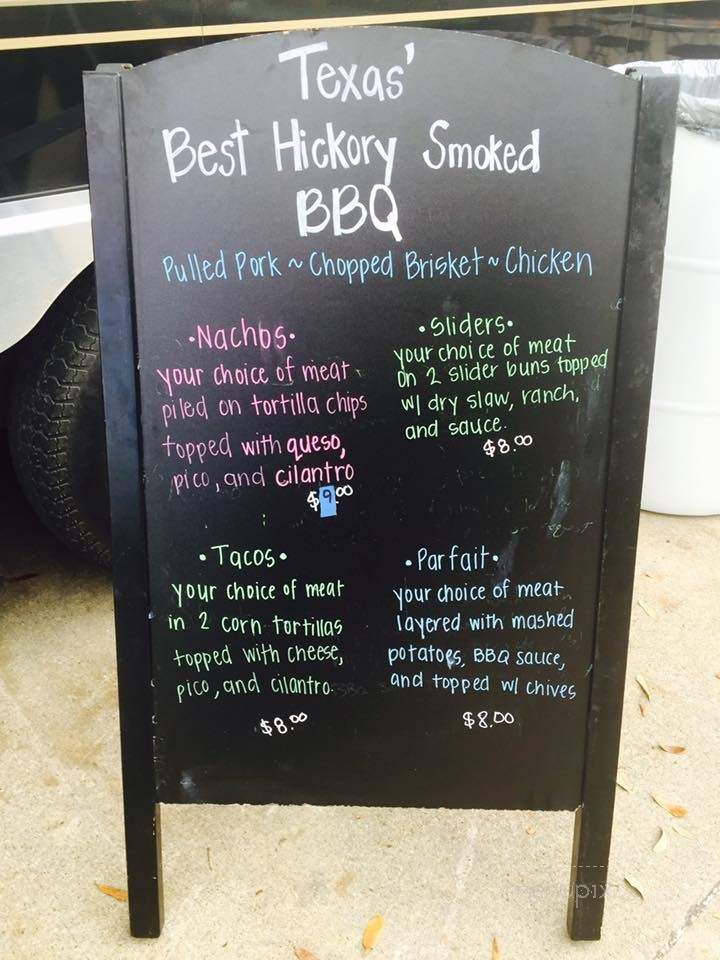 Texas'
Best Hickory Smoked
BBQ
Pulled Pork ~ Chopped Brisket ~ Chicken
•Nachos•
your choice of meat
piled on tortilla chips
topped with queso,
pico, and cilantro
$9.00
•Sliders•
your choice of meat
on 2 slider buns topped
w/ dry slaw, ranch,
and sauce.
$8.00
•Tacos•
your choice of meat
in 2 corn tortillas
topped with cheese,
pico, and cilantro.
$8.00
•Parfait•
your choice of meat
layered with mashed
potatoes, BBQ sauce,
and topped w/ chives
$8.00